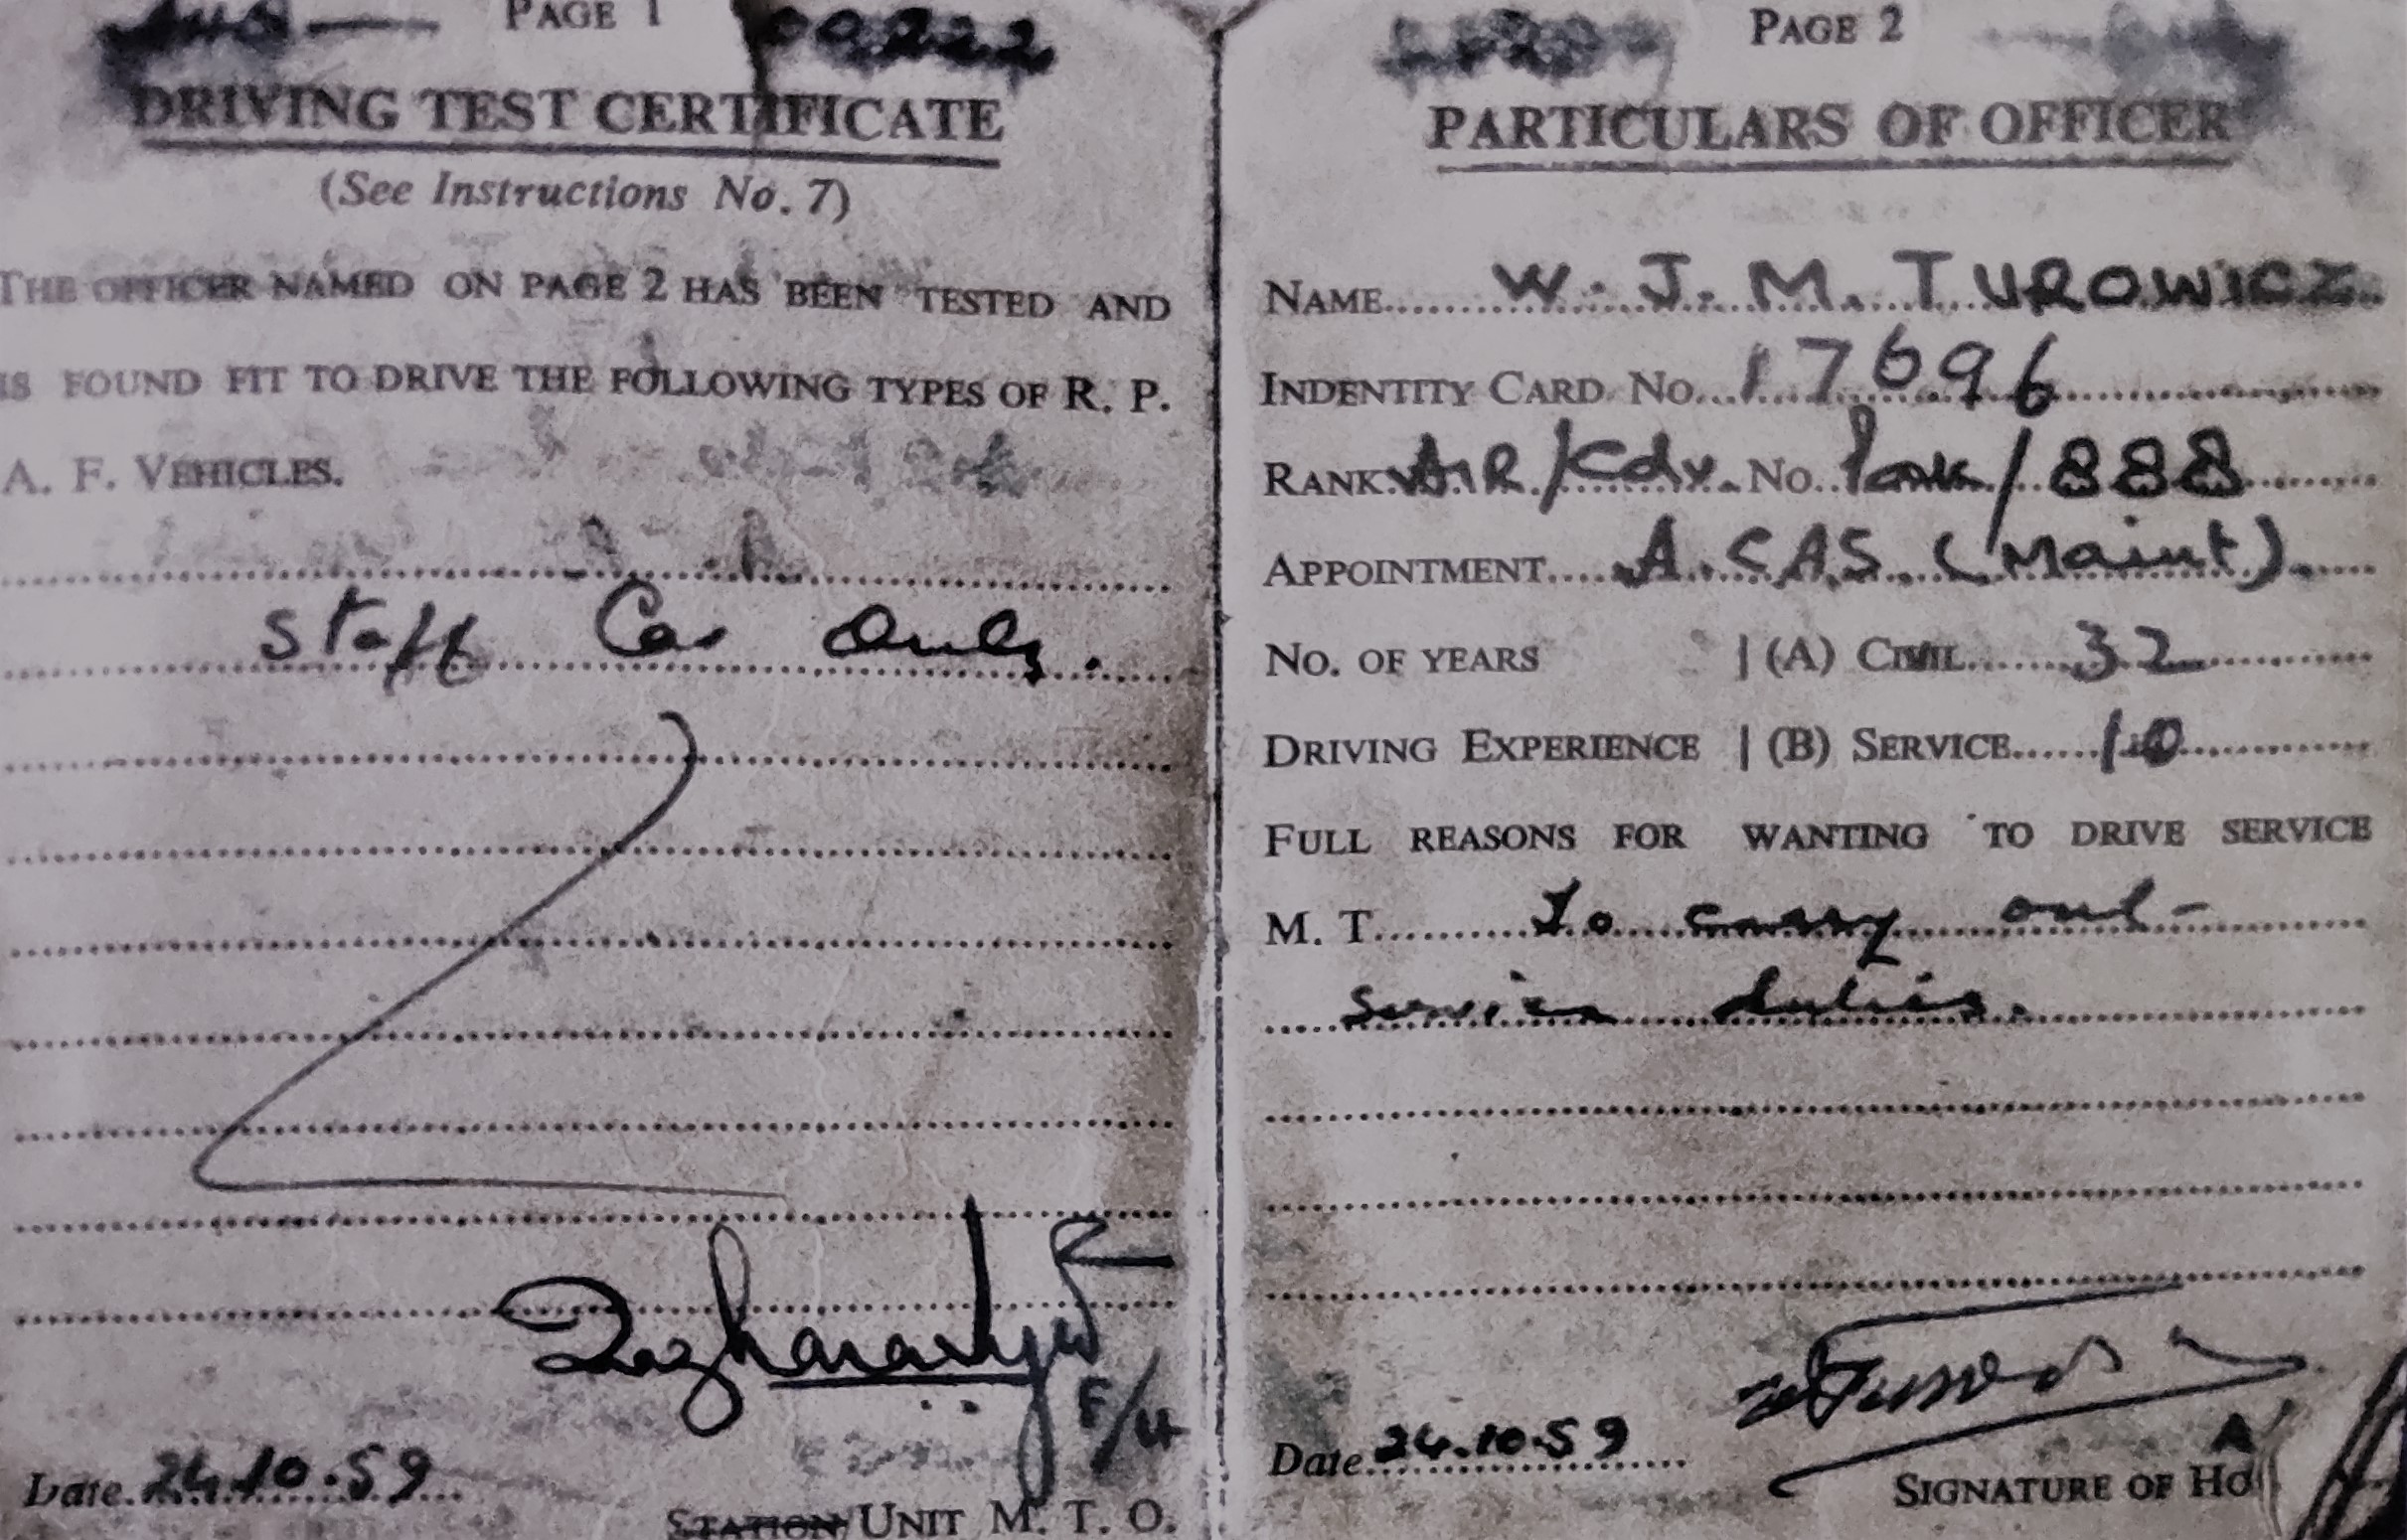 PAGE 1
DRIVING TEST CERTIFICATE
(See Instructions No. 7)
THE OFFICER NAMED ON PAGE 2 HAS BEEN TESTED AND
IS FOUND FIT TO DRIVE THE FOLLOWING TYPES OF R. P.
A. F. VEHICLES.
Staff Car Only.
F/Lt
Date 24.10.59
STATION/UNIT M. T. O.
PAGE 2
PARTICULARS OF OFFICER
NAME W. J. M. TUROWICZ
INDENTITY CARD NO. 17696
RANK AIR/Cdr. NO. Pak/888
APPOINTMENT A.CAS (Maint)
NO. OF YEARS | (A) CIVIL 32
DRIVING EXPERIENCE | (B) SERVICE 10
FULL REASONS FOR WANTING TO DRIVE SERVICE
M. T. To carry out
service duties.
Date 24.10.59
A
SIGNATURE OF HO